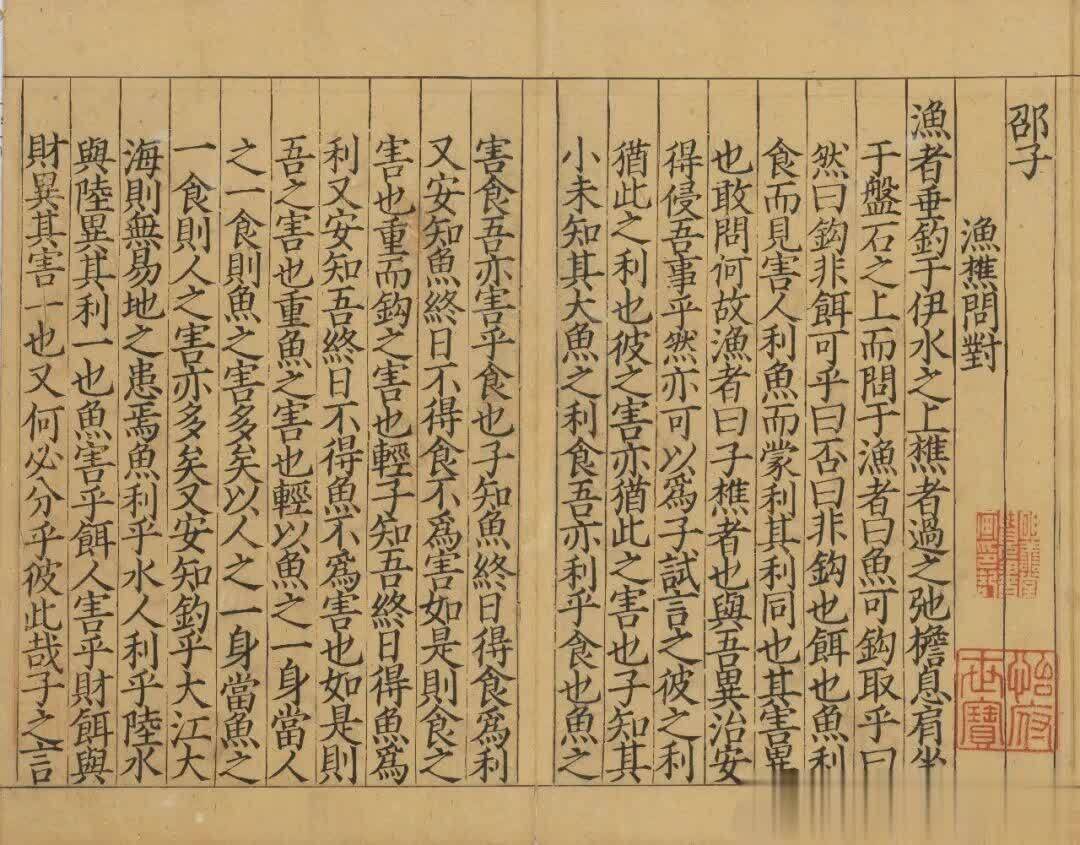 邵子
漁樵問對
漁者垂釣于伊水之上樵者過之弛檐息肩坐
于盤石之上而問于漁者曰魚可鈎取乎曰
然曰鈎非餌可乎曰否曰非鈎也餌也魚利
食而見害人利魚而蒙利其利同也其害異
也敢問何故漁者曰子樵者也與吾異治安
得侵吾事乎然亦可以為子試言之彼之利
猶此之利也彼之害亦猶此之害也子知其
小未知其大魚之利食吾亦利乎食也魚之
害食吾亦害乎食也子知魚終日得食為利
又安知魚終日不得食不為害如是則食之
害也重而鈎之害也輕子知吾終日得魚為
利又安知吾終日不得魚不為害也如是則
吾之害也重魚之害也輕以魚之一身當人
之一食則魚之害多矣以人之一身當魚之
一食則人之害亦多矣又安知釣乎大江大
海則無易地之患焉魚利乎水人利乎陸水
與陸異其利一也魚害乎餌人害乎財餌與
財異其害一也又何必分乎彼此哉子之言
怡府世寶